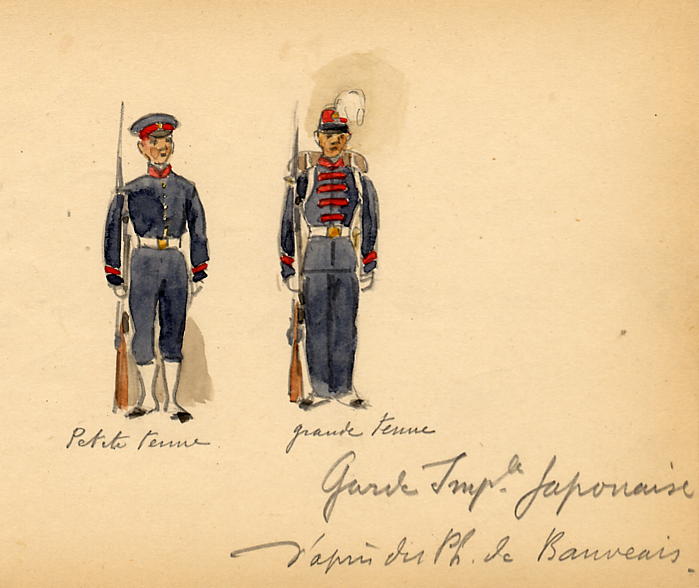 Petite tenue
grande tenue
Garde Imp.le Japonaise
D'après des Ph. de Bauveais.